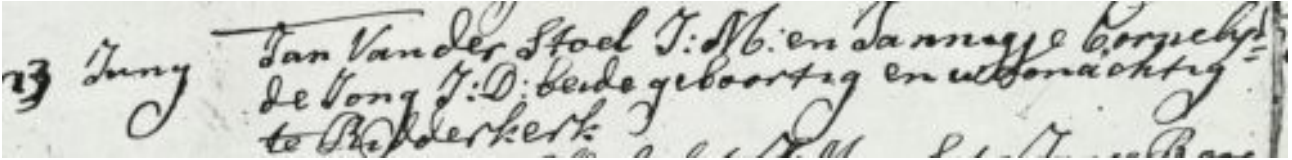 13 Juny Jan Van der Stoel J:M: en Jannigje Cornelisd=
de Jong J:D: beide geboortig en woonachtig
te Ridderkerk